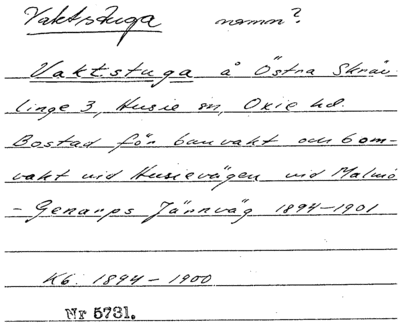 Vaktstuga namn?
Vaktstuga å Östra Skräv-
linge 3, Husie sn, Oxie hd.
Bostad för banvakt och bom-
vakt vid Husievägen vid Malmö
- Genarps Järnväg 1894-1901
Kb. 1894-1900
Nr 5731.